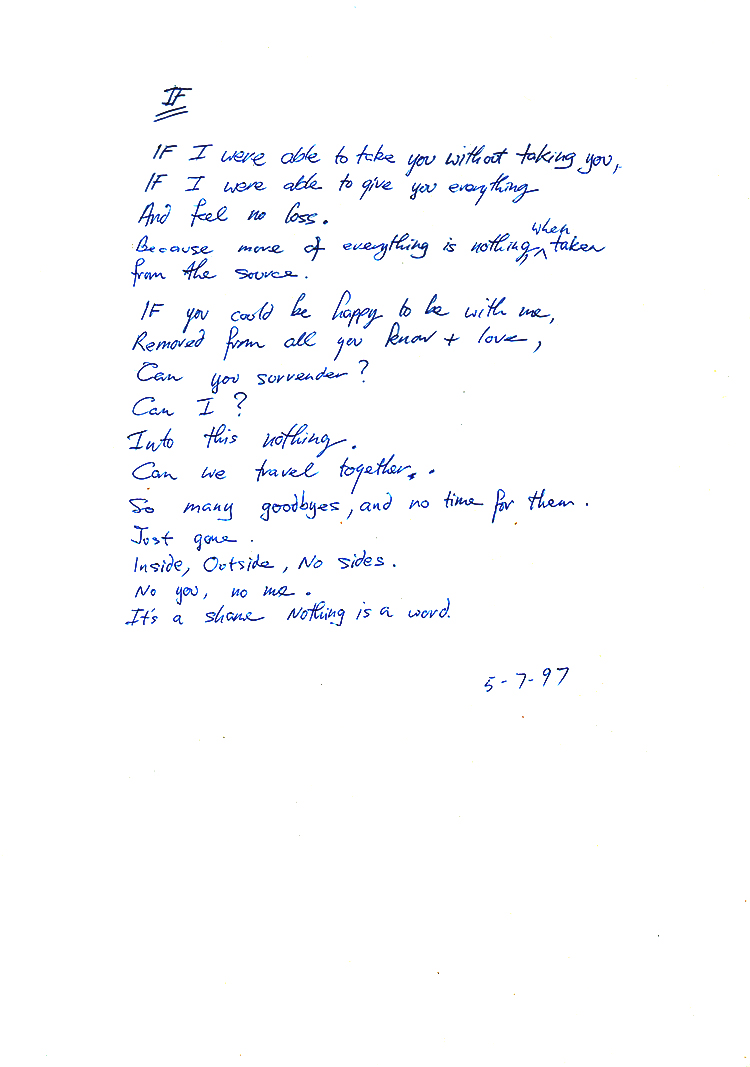 IF
IF I were able to take you without taking you,
IF I were able to give you everything
And feel no loss.
Because more of everything is nothing, when taken
from the source.
IF you could be happy to be with me,
Removed from all you know + love,
Can you surrender?
Can I?
Into this nothing.
Can we travel together.
So many goodbyes, and no time for them.
Just gone.
Inside, Outside, No sides.
No you, no me.
It's a shame Nothing is a word.
5-7-97